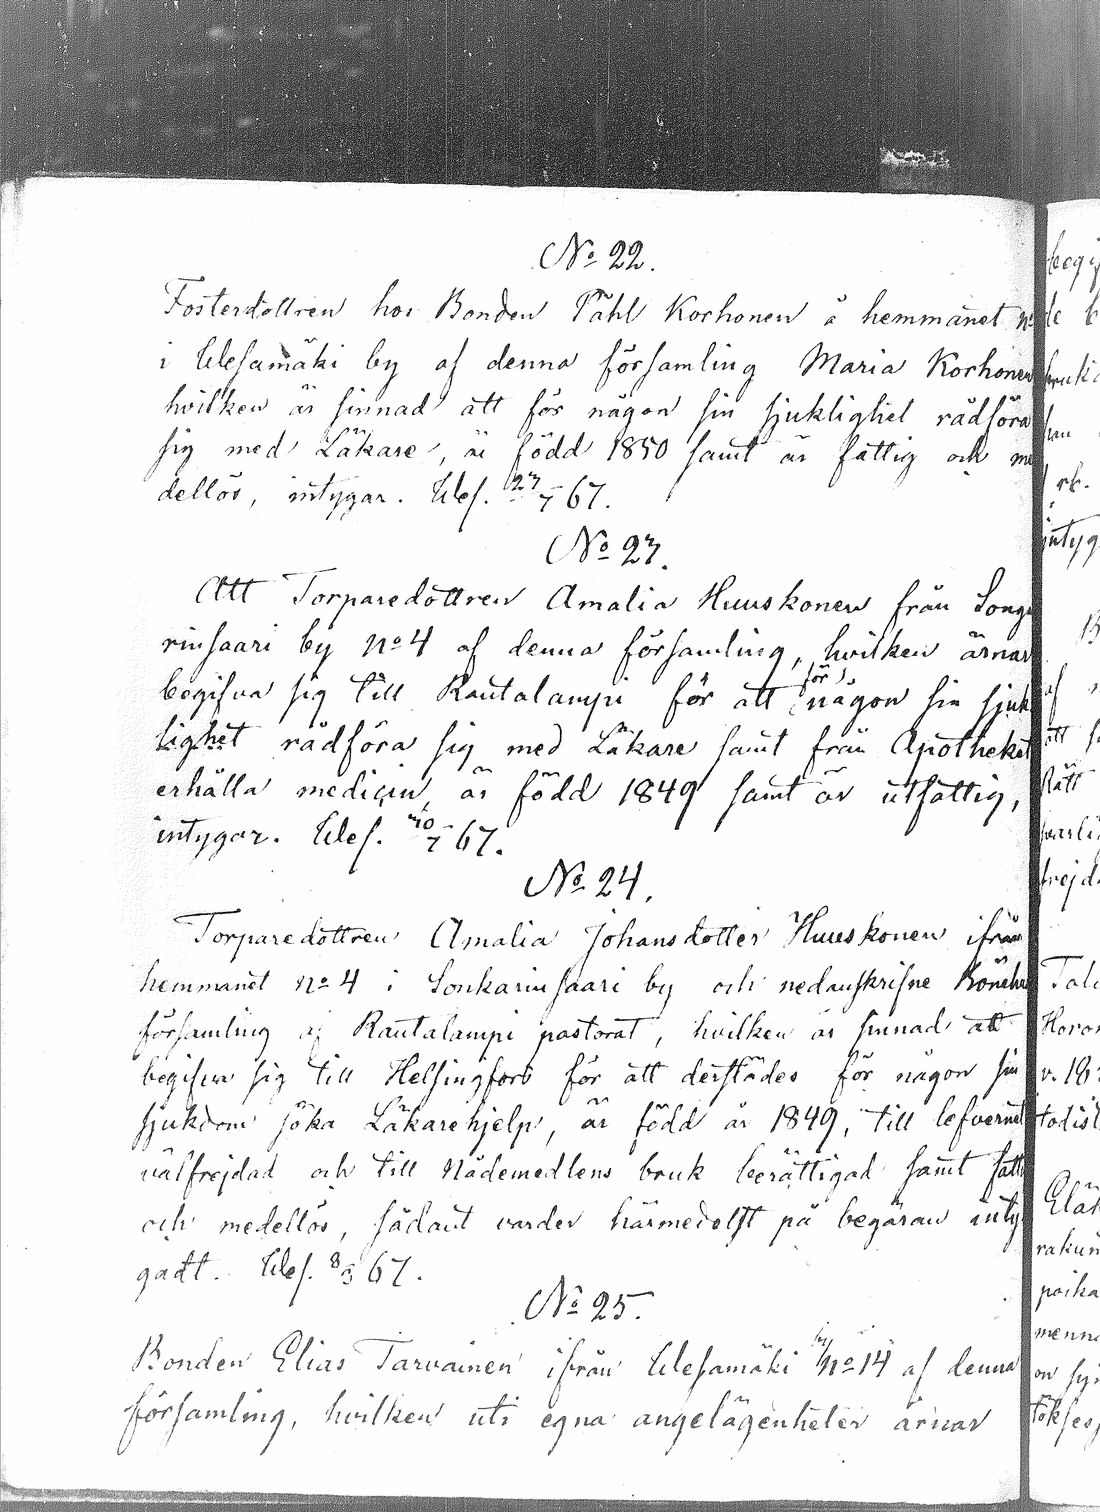 No 22.
Fosterdottren hos Bonden Påhl Korhonen å hemmanet No
i Wesamäki by af denna församling Maria Korhonen
hvilken är sinnad att för någon sin sjuklighet rådföra
sig med Läkare, är född 1850 samt är fattig och me
dellös, intygar. Wes. 67.
No 23.
Att Torparedottren Amalia Huuskonen från Songa
rinsaari by No 4 af denna församling, hvilken ärnar
begifva sig till Rautalampi för att för någon sin sjuk
lighet rådföra sig med Läkare samt från Apotheket
erhålla medicin, är född 1849 samt är utfattig,
intygar. Wes. 67.
No 24.
Torparedottren Amalia Johansdotter Huuskonen ifrån
hemmanet No 4 i Sonkarinsaari by och nedanskrifne
församling af Rautalampi pastorat, hvilken är sinnad att
begifva sig till Helsingfors för att derstädes för någon sin
sjukdom söka Läkarehjelp, är född år 1849, till lefvernet
välfrejdad och till Nådemedlens bruk berättigad samt fatt
och medellös, sådant varder härmedelst på begäran inty
gadt. Wes. 8/3 67.
No 25.
Bonden Elias Tarvainen ifrån Wesamäki by No 14 af denna
församling, hvilken uti egna angelägenheter ärnar